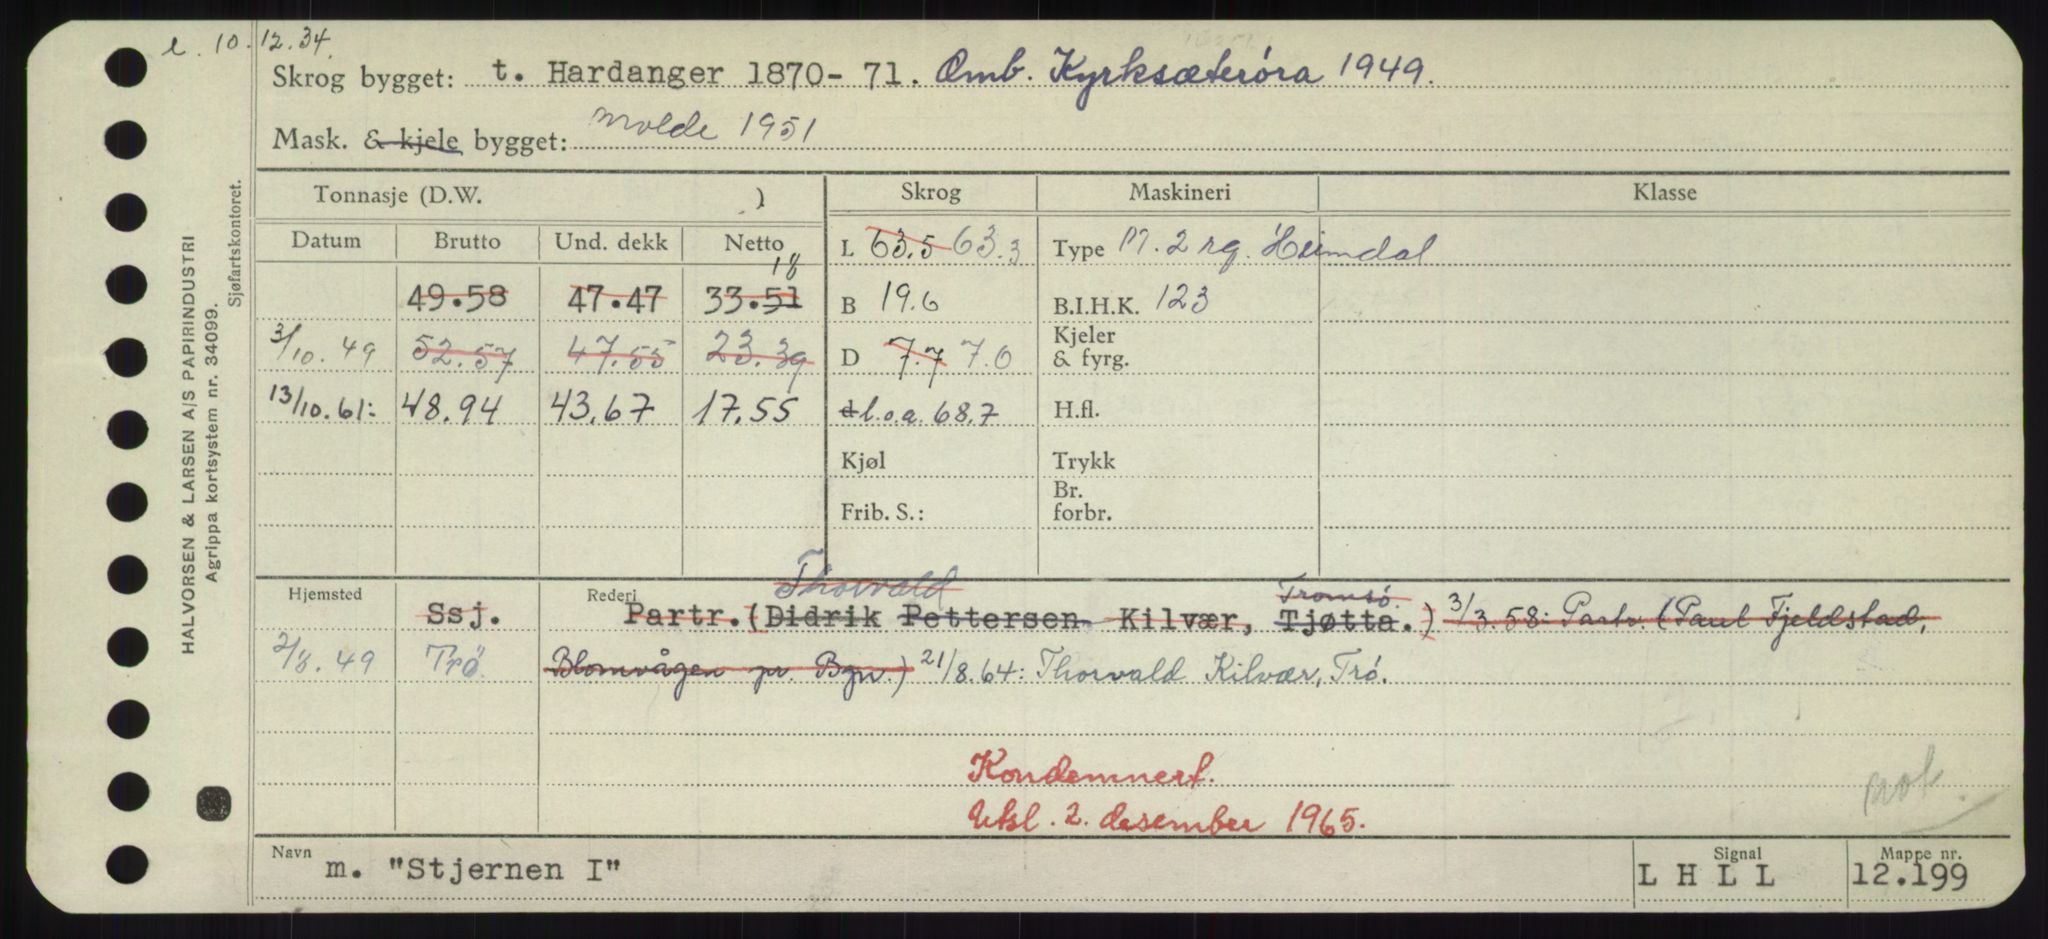 e. 10.12.34.
Skrog bygget: t. Hardanger 1870-71. Omb. Kyrksæterøra 1949.
Mask. & kjele bygget: Molde 1951
Tonnasje (D.W. ) Skrog Maskineri Klasse
Datum Brutto Und. dekk Netto L 63.5 63.3 Type M. 2 syl. Heimdal
18
49.58 47.47 33.51 B 19.6 B.I.H.K. 123
3/10.49 52.57 47.55 23.39 D 7.7 7.0 Kjeler & fyrg.
13/10.61: 48.94 43.67 17.55 d l.o.a. 68.7 H.fl.
Kjøl Trykk
Frib. S.: Br. forbr.
Hjemsted Rederi Thorvald Tromsø.
Ssj. Partr. (Didrik Pettersen Kilvær, Tjøtta.) 3/3.58: Partr. (Paul Fjeldstad,
2/8.49 Trø. Blomvågen pr. Bgn.) 21/8.64: Thorvald Kilvær, Trø.
Kondemnert.
Uksl. 2. desember 1965.
not.
Navn m. "Stjernen I" Signal L H L L Mappe nr. 12.199
HALVORSEN & LARSEN A/S PAPIRINDUSTRI
Agrippa kortsystem nr. 34099.
Sjøfartskontoret.